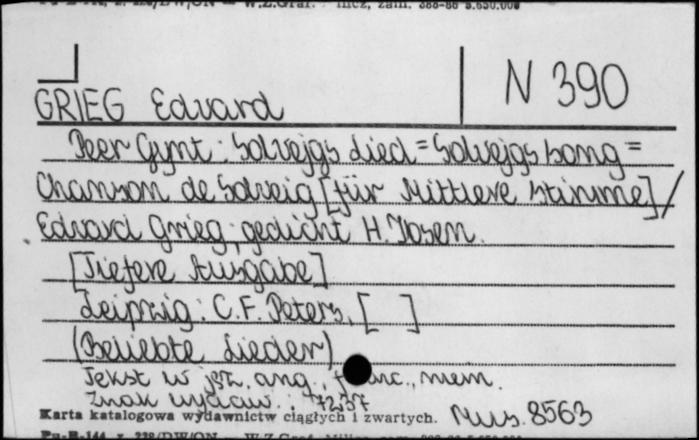 N 390
GRIEG Edvard
Peer Gynt: Solvejgs Lied = Solvejgs song =
Chanson de Solveig [für Mittlere Stimme] /
Edvard Grieg; gedicht H. Ibsen.
[Tiefere Ausgabe]
Leipzig: C.F. Peters, [ ]
(Beliebte Lieder)
Tekst w jęz. ang., franc., niem.
Znak wydaw.: 7237
Karta katalogowa wydawnictw ciągłych i zwartych.
Mus. 8563